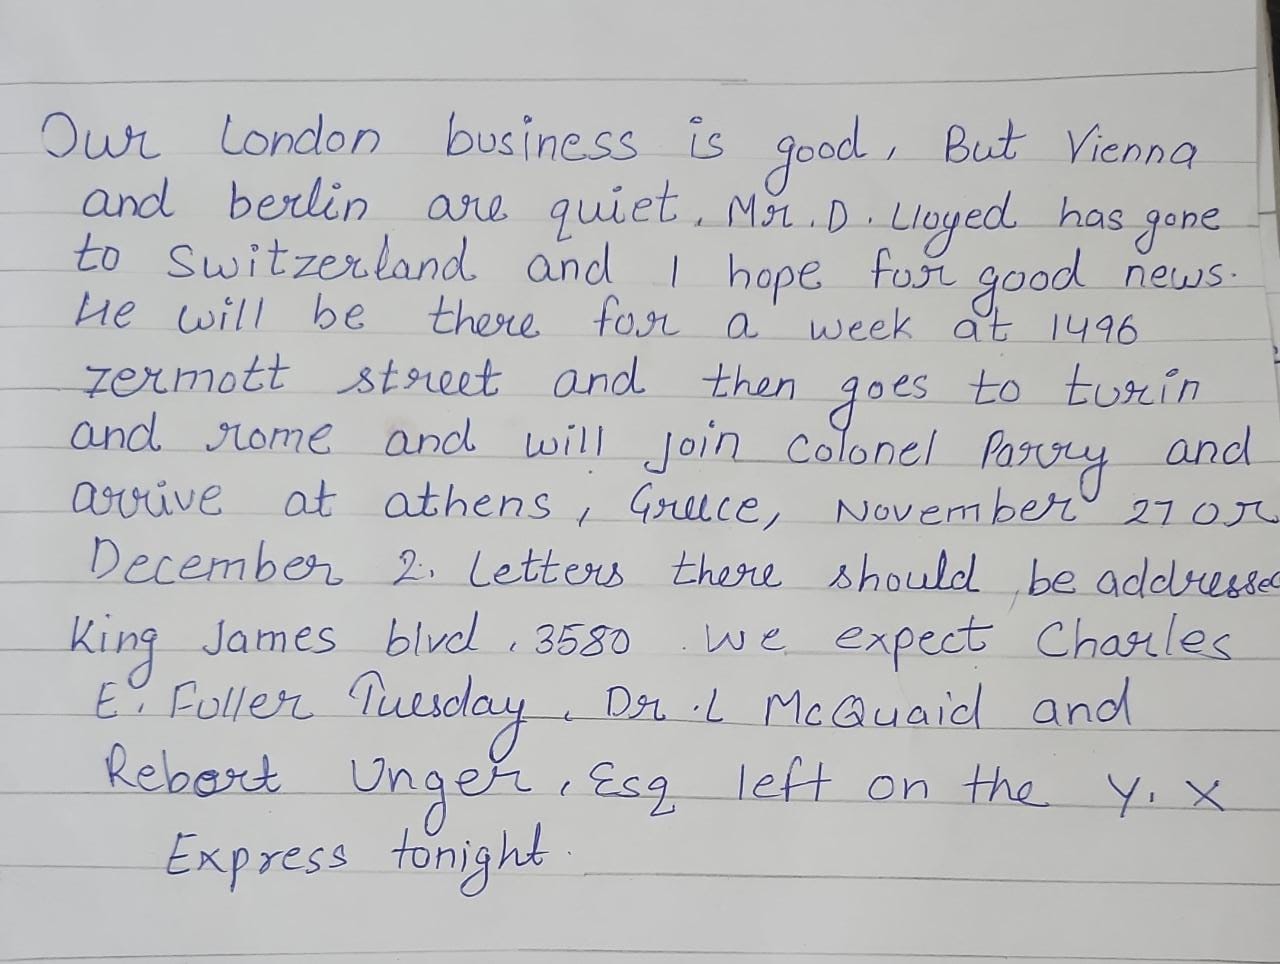 Our London business is good, But Vienna
and berlin are quiet. Mr. D. Lloyed has gone
to Switzerland and I hope for good news.
He will be there for a week at 1496
zermott street and then goes to turin
and rome and will join colonel Parry and
arrive at athens, Greece, November 27 or
December 2. Letters there should be addressed
King James blvd. 3580. we expect Charles
E. Fuller Tuesday, Dr. L McQuaid and
Rebort Unger, Esq left on the Y. X
Express tonight.